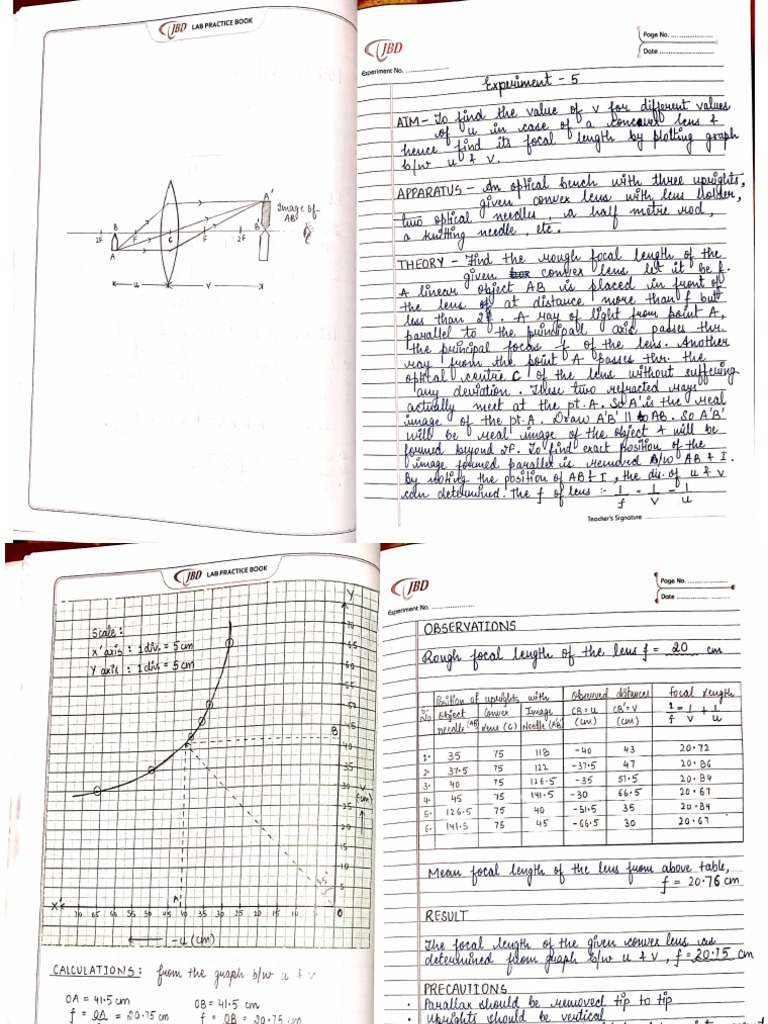 JBD LAB PRACTICE BOOK
2F
B
A
F
C
F
2F
A'
B'
Image of
AB
u
v
JBD
Page No. ....................
Date ....................
Experiment No. ....................
Experiment - 5
AIM - To find the value of v for different values
of u in case of a concave lens &
hence find its focal length by plotting graph
b/w u & v.
APPARATUS - An optical bench with three uprights,
given convex lens with lens holder,
two optical needles, a half metre rod,
a knitting needle, etc.
THEORY - Find the rough focal length of the
given convex lens let it be f.
A linear object AB is placed in front of
the lens at distance more than f but
less than 2f. A ray of light from point A,
parallel to the principall axis passes thr.
the principal focus f of the lens. Another
ray from the point A passes thr. the
optical centre C of the lens without suffering
any deviation. These two refracted rays
actually meet at the pt. A. So A' is the real
image of the pt. A. Draw A'B' || to AB. So A'B'
will be real image of the object & will be
formed beyond 2F. To find exact position of the
image formed parallex is removed b/w AB & I.
By noting the position of AB & I, the dis. of u & v
can determined. The f of lens :- 1/f = 1/v - 1/u
Teacher's Signature
JBD LAB PRACTICE BOOK
Scale:
x' axis : 1 div. = 5 cm
Y axis : 1 div. = 5 cm
Y
70
65
55
50
45
B
40
35
30
25
20
15
10
5
v
(cm)
45°
A'
X'
70 65 60 55 50 45 40 35 30 25 20 15 10 5 0
- u (cm)
CALCULATIONS: from the graph b/w u & v
OA = 41.5 cm OB = 41.5 cm
f = OA = 20.75 cm f = OB = 20.75 cm
JBD
Page No. ....................
Date ....................
Experiment No. ....................
OBSERVATIONS
Rough focal length of the lens f = 20 cm
S. No. Position of uprights with Observed distances Focal length
Object needle (AB) Convex lens (C) Image Needle (A'B') CB = u (cm) CB' = v (cm) 1/f = 1/v + 1/u
1. 35 75 118 -40 43 20.72
2. 37.5 75 122 -37.5 47 20.86
3. 40 75 126.5 -35 51.5 20.84
4. 45 75 141.5 -30 66.5 20.67
5. 126.5 75 40 -51.5 35 20.84
6. 141.5 75 45 -66.5 30 20.67
Mean focal length of the lens from above table,
f = 20.76 cm
RESULT
The focal length of the given convex lens as
determined from graph b/w u & v, f = 20.75 cm
PRECAUTIONS
• Parallax should be removed tip to tip
• Uprights should be vertical